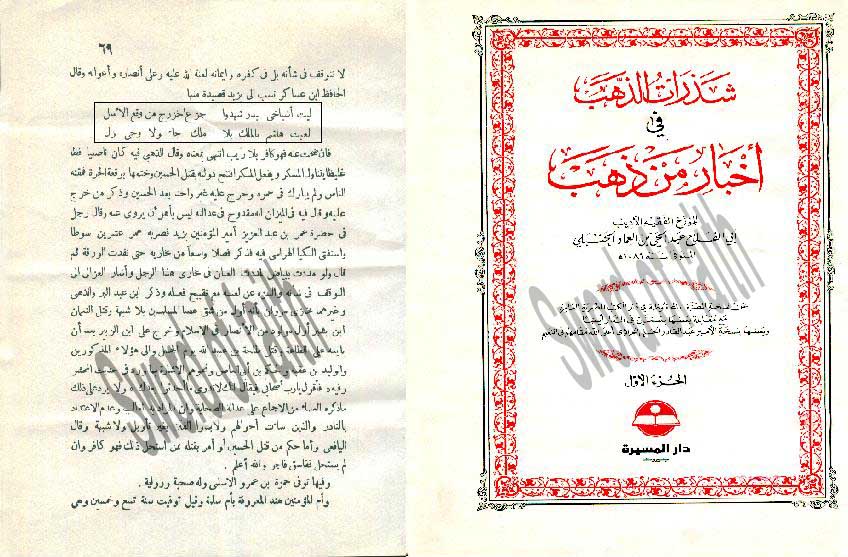 ٦٩
لا نتوقف في شأنه بل في كفره وإيمانه لعنة الله عليه وعلى أنصاره وأعوانه وقال
الحافظ ابن عساكر نسب الى يزيد قصيدة منها
ليت أشياخي ببدر شهدوا جزع الخزرج من وقع الأسل
لعبت هاشم بالملك بلا ملك جاء ولا وحي نزل
فان صحت عنه فهو كافر بلا ريب انتهى بمعناه وقال الذهبي فيه كان ناصبيا فظا
غليظا يتناول المسكر ويفعل المنكر افتتح دولته بقتل الحسين وختمها بوقعة الحرة فمقته
الناس ولم يبارك في عمره وخرج عليه غير واحد بعد الحسين وذكر من خرج
عليه وقال فيه في الميزان انه مقدوح في عدالته ليس بأهل أن يروى عنه وقال رجل
في حضرة عمر بن عبد العزيز أمير المؤمنين يزيد فضربه عمر عشرين سوطا
واستفتى الكيا الهراسي فيه فذكر فصلا واسعا من مخازيه حتى نفدت الورقة ثم
قال ولو مددت ببياض لمددت العنان في مخازي هذا الرجل وأشار الغزالي الى
التوقف في شأنه والتنزه عن لعنه مع تقبيح فعله وذكر ابن عبد البر والذهبي
وغيرهما مخازي مروان بأنه أول من شق عصا المسلمين بلا شبهة وقتل النعمان
ابن بشير أول مولود من الأنصار في الاسلام وخرج على ابن الزبير بعد أن
بايعه على الطاعة وقتل طلحة بن عبيد الله يوم الجمل والى هؤلاء المذكورين
والوليد بن عقبة والحكم بن أبي العاص ونحوهم الاشارة بما ورد في حديث المحشر
وفيه فأقول يارب أصحابي فيقال انك لا تدري ما أحدثوا بعدك ولا يرد على ذلك
ما ذكره العلماء من الاجماع على عدالة الصحابة وان المراد به الغالب وعدم الاعتداد
بالنادر والذين ساءت أحوالهم ولابسوا الفتن بغير تأويل ولا شبهة وقال
اليافعي وأما حكم من قتل الحسين أو أمر بقتله ممن استحل ذلك فهو كافر وان
لم يستحل ففاسق فاجر والله أعلم .
وفيها توفي حمزة بن عمرو الاسلمي وله صحبة ورواية .
وأم المؤمنين هند المعروفة بأم سلمة وقيل توفيت سنة تسع وخمسين وهي
شذرات الذهب
في
أخبار من ذهب
للمؤرخ الفقيه الأديب
أبي الفلاح عبد الحي بن العماد الحنبلي
المتوفى سنة ١٠٨٩ هـ
الجزء الأول
دار المسيرة
Sinidat Faatih